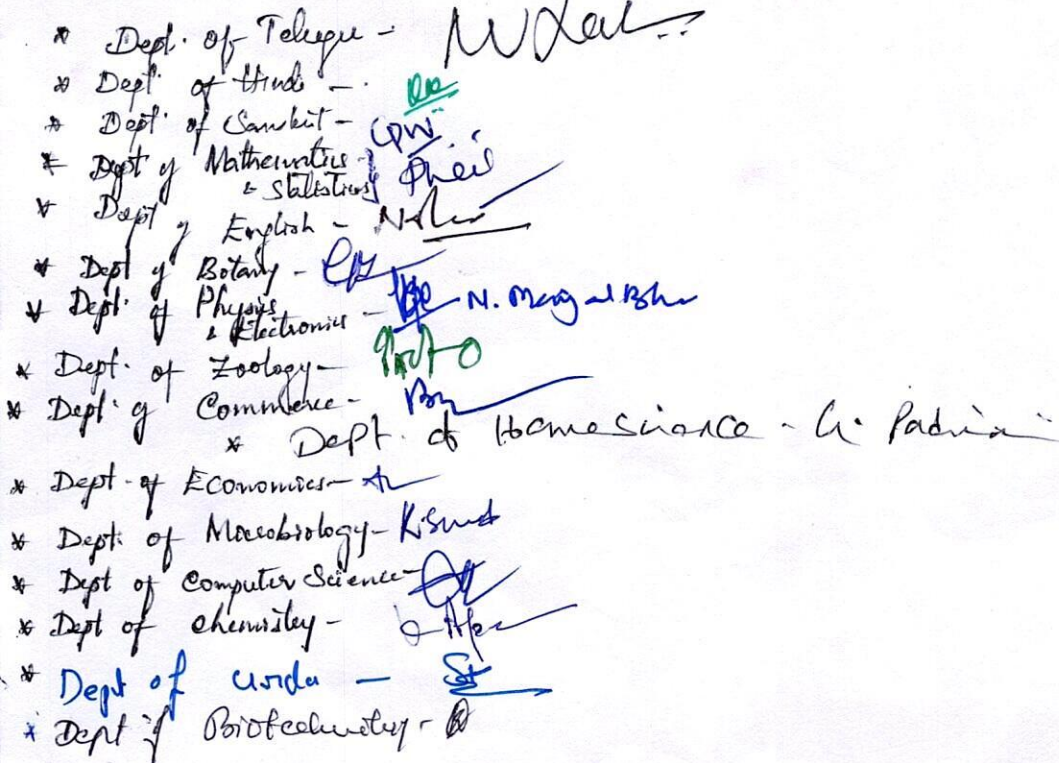 * Dept. of Telugu -
* Dept of Hindi -
* Dept. of Sanskit -
* Dept of Mathematics
& Statistics
* Dept of English -
* Dept of Botany -
* Dept. of Physics
& Electronics - N.
* Dept. of Zoology -
* Dept. of Commerce -
* Dept. of Homescience - G. Padma
* Dept. of Economics -
* Dept. of Microbiology -
* Dept of Computer Science -
* Dept of chemistry -
* Dept of Urdu -
* Dept of Biotechnology -